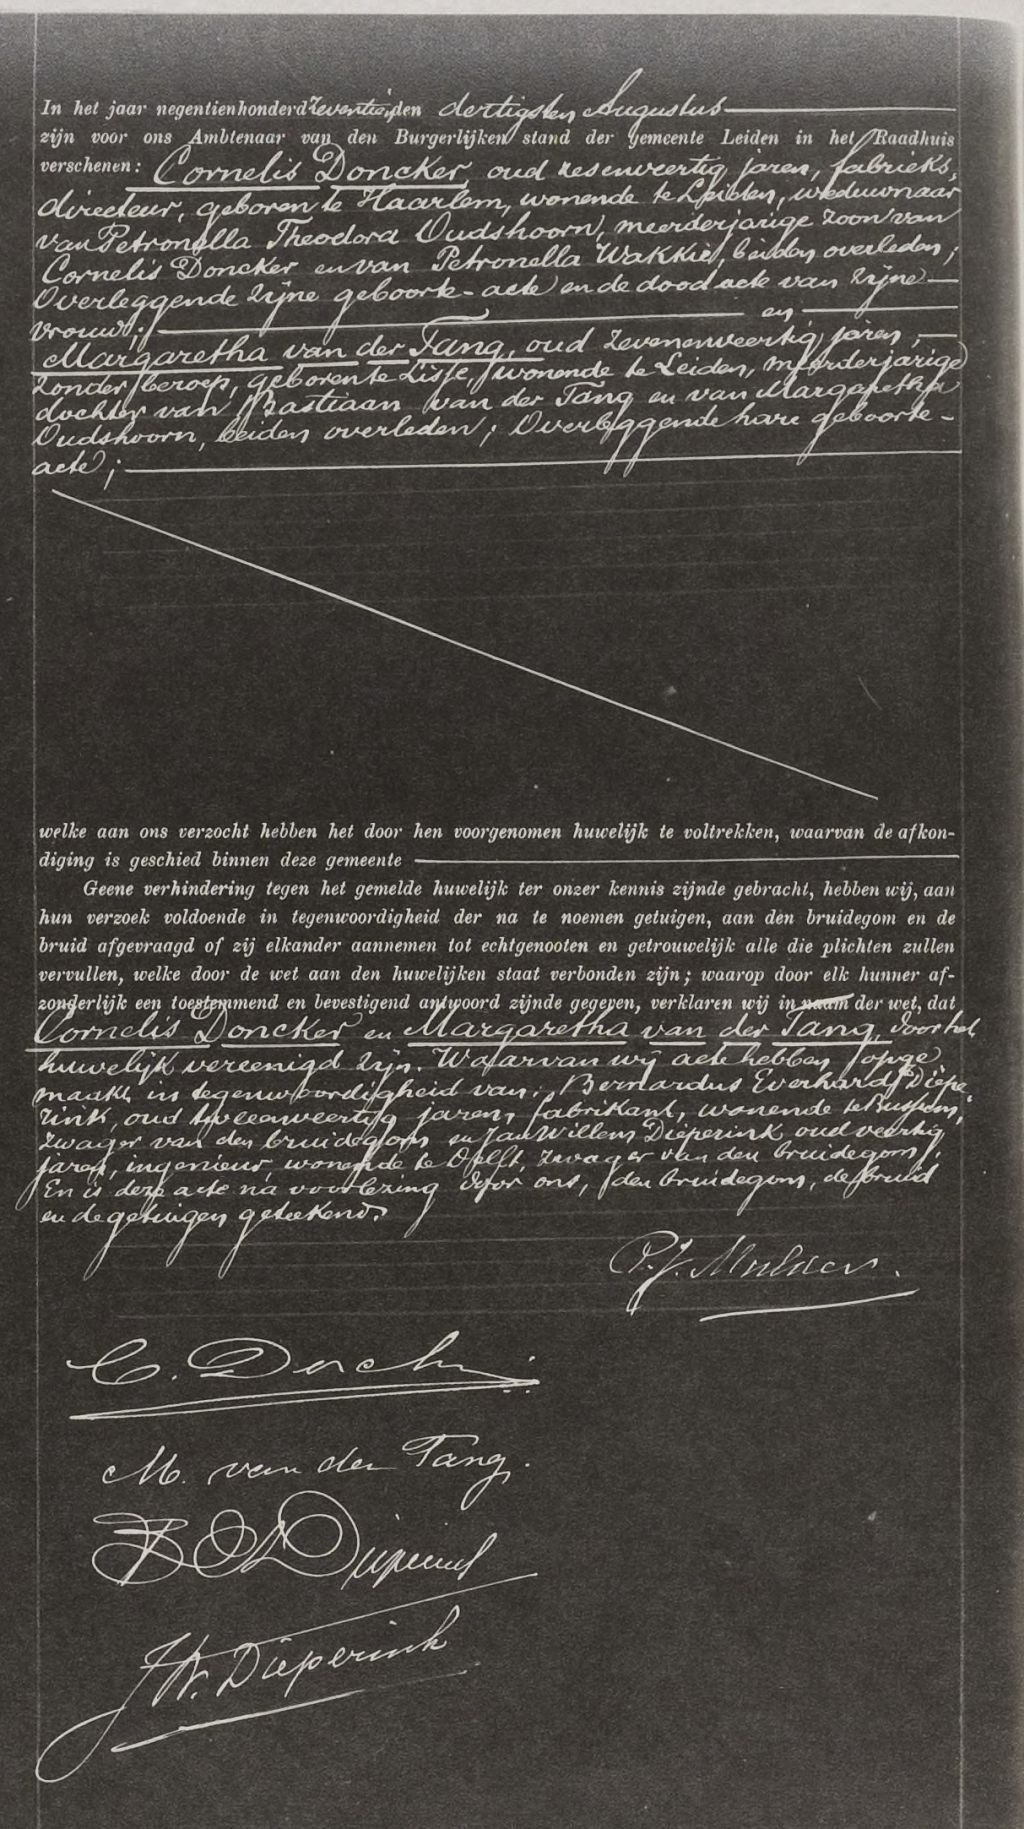 In het jaar negentienhonderd zeventien, den dertigsten Augustus
zijn voor ons Ambtenaar van den Burgerlijken stand der gemeente Leiden in het Raadhuis
verschenen: Cornelis Doncker, oud zesenveertig jaren, fabrieks-
directeur, geboren te Haarlem, wonende te Leiden, weduwnaar
van Petronella Theodora Oudshoorn, meerderjarige zoon van
Cornelis Doncker en van Petronella Wakkie, beiden overleden;
Overleggende zijne geboorte-acte en de doodacte van zijne
vrouw; en
Margaretha van der Tang, oud zevenenveertig jaren,
zonder beroep, geboren te Lisse, wonende te Leiden, meerderjarige
dochter van Bastiaan van der Tang en van Margaretha
Oudshoorn, beiden overleden; Overleggende hare geboorte-
acte;
welke aan ons verzocht hebben het door hen voorgenomen huwelijk te voltrekken, waarvan de afkon-
diging is geschied binnen deze gemeente
Geene verhindering tegen het gemelde huwelijk ter onzer kennis zijnde gebracht, hebben wij, aan
hun verzoek voldoende in tegenwoordigheid der na te noemen getuigen, aan den bruidegom en de
bruid afgevraagd of zij elkander aannemen tot echtgenooten en getrouwelijk alle die plichten zullen
vervullen, welke door de wet aan den huwelijken staat verbonden zijn; waarop door elk hunner af-
zonderlijk een toestemmend en bevestigend antwoord zijnde gegeven, verklaren wij in naam der wet, dat
Cornelis Doncker en Margaretha van der Tang, door het
huwelijk vereenigd zijn. Waarvan wij acte hebben opge-
maakt in tegenwoordigheid van: Bernardus Everhard Diepe-
rink, oud tweeenveertig jaren, fabrikant, wonende te Bussum,
zwager van den bruidegom en Jan Willem Dieperink oud veertig
jaren, ingenieur, wonende te Delft, zwager van den bruidegom.
En is deze acte na voorlezing door ons, den bruidegom, de bruid
en de getuigen geteekend.
P.J. Mulder
C. Doncker
M. van der Tang.
B E Dieperink
J.W. Dieperink